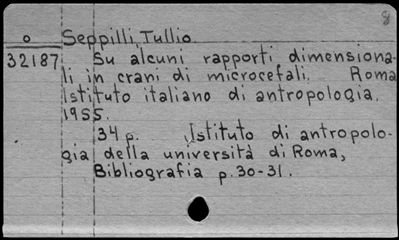 8
o Seppilli, Tullio
32187 Su alcuni rapporti dimensiona-
li in crani di microcefali. Roma
Istituto italiano di antropologia,
1955.
34 p. Istituto di antropolo-
gia della università di Roma,
Bibliografia p. 30-31.